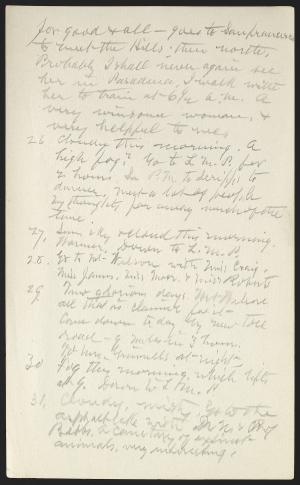 for good & all – goes to San francisco
to meet the Hills; then north,
Probably I shall never again see
her in Pasadena, I walk with
her to train at 6½ a.m. A
very winsome woman, &
very helpful to me,
26 Cloudy this morning. A
high fog? Go to L. M. P. for
2 hours, In P.M. to Scripps to
dinner, meet a lot of people
my thoughts far away much of the
time.
27, Sun & sky veiled this morning.
Warmer, Down to L. M. P.
28. Go to Mt. Wilson with Miss Craig,
Miss James, Miss
29 Two glorious days. Mt Wilson
all that is claimed for it
Come down to day by new toll
road – 9 miles in 3 hours.
at night
30 Fog this morning, which lifts
at 9. Down to L. M. P.
31, Cloudy, misty. Go to the
asphalt lake with Dr N. &
Bebbs, a cemetery of extinct
animals, very interesting.